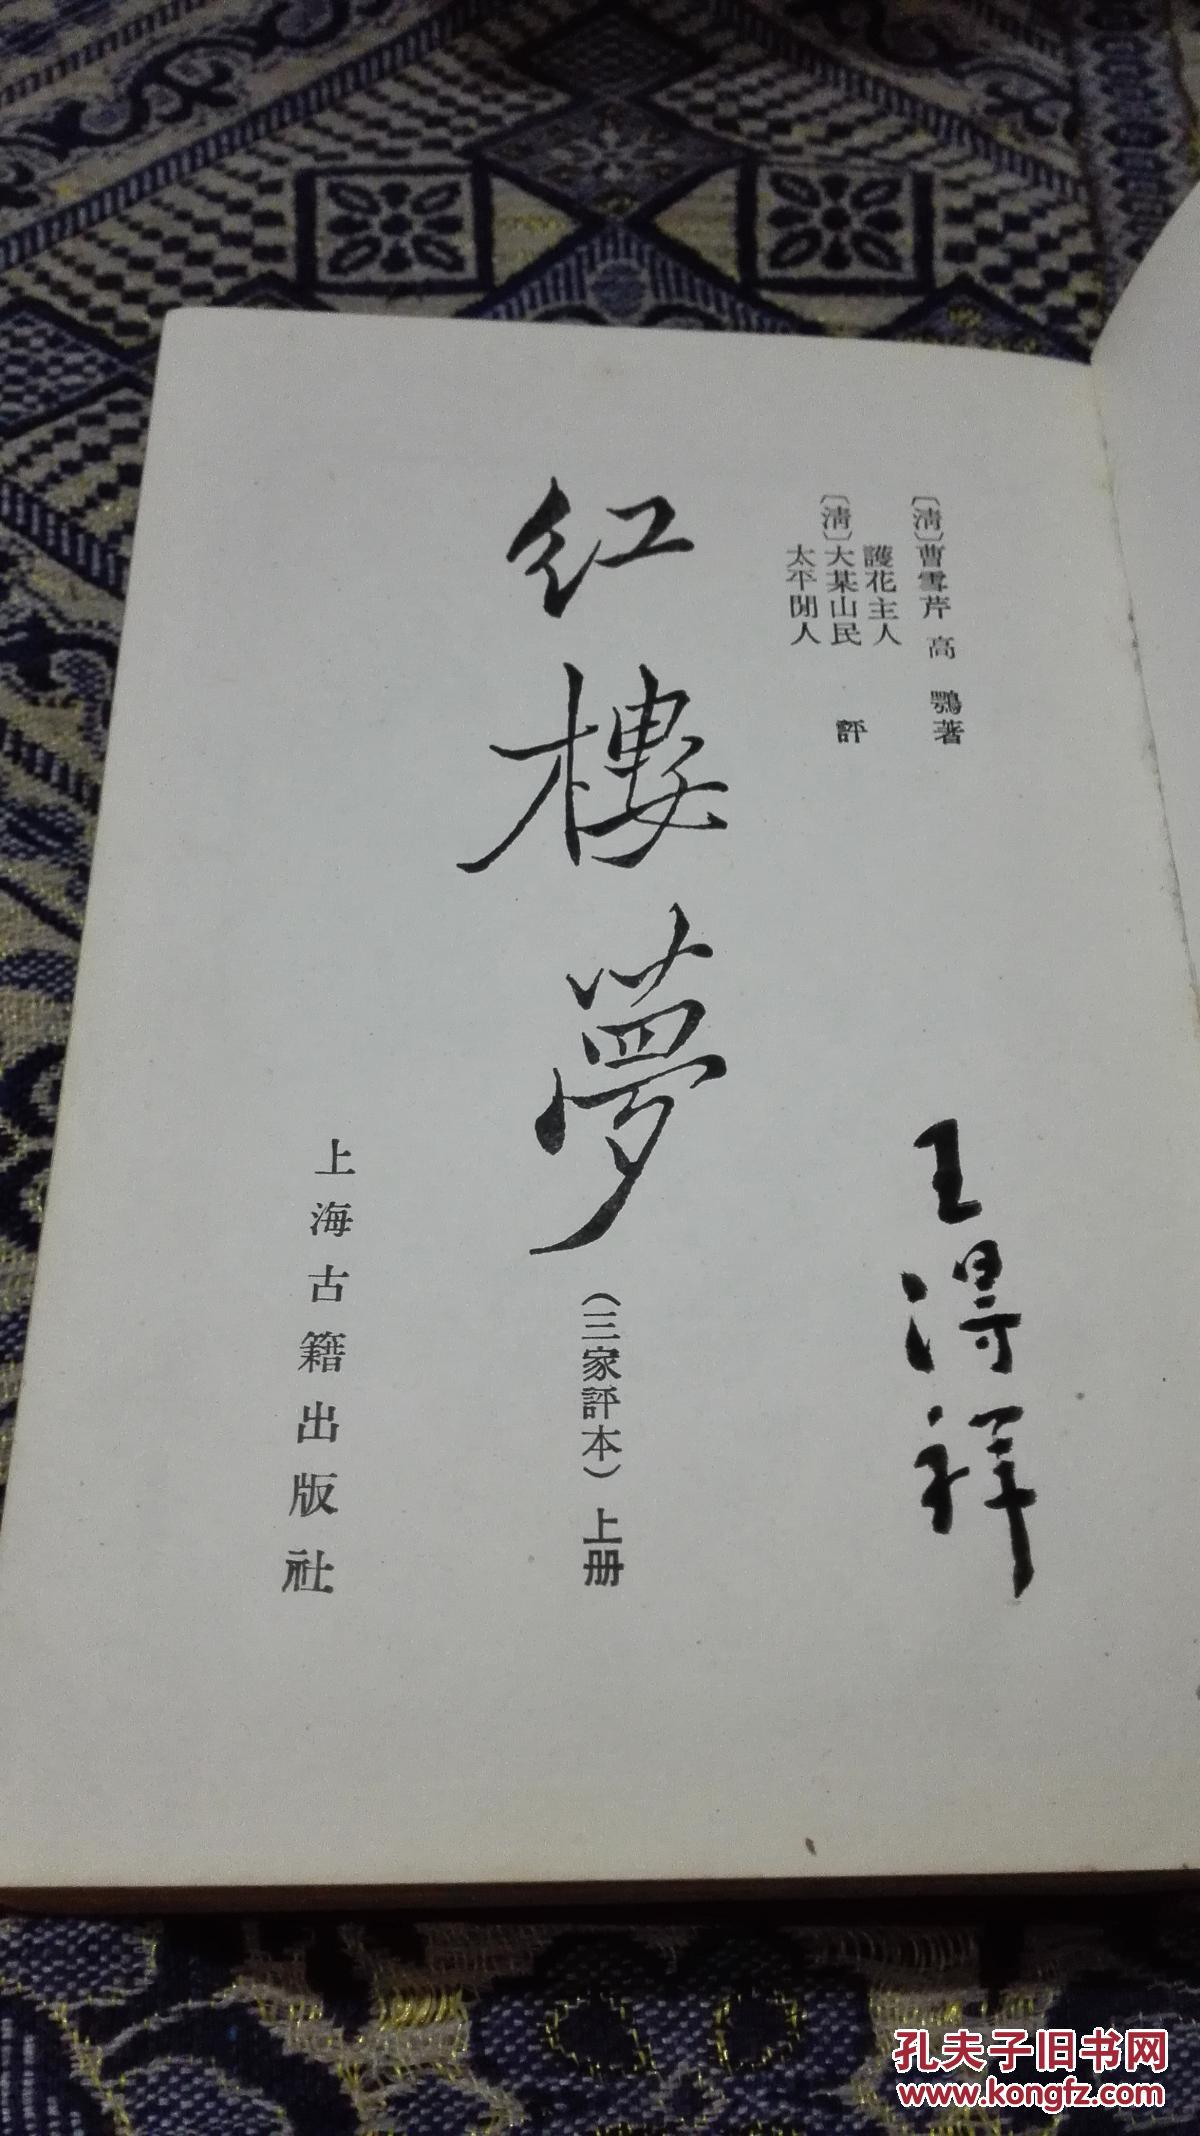 〔清〕曹雪芹 高 鶚著
護花主人
〔清〕大某山民 評
太平閒人
王得祥
红樓夢
（三家評本）上册
上海古籍出版社
孔夫子旧书网
www.kongfz.com